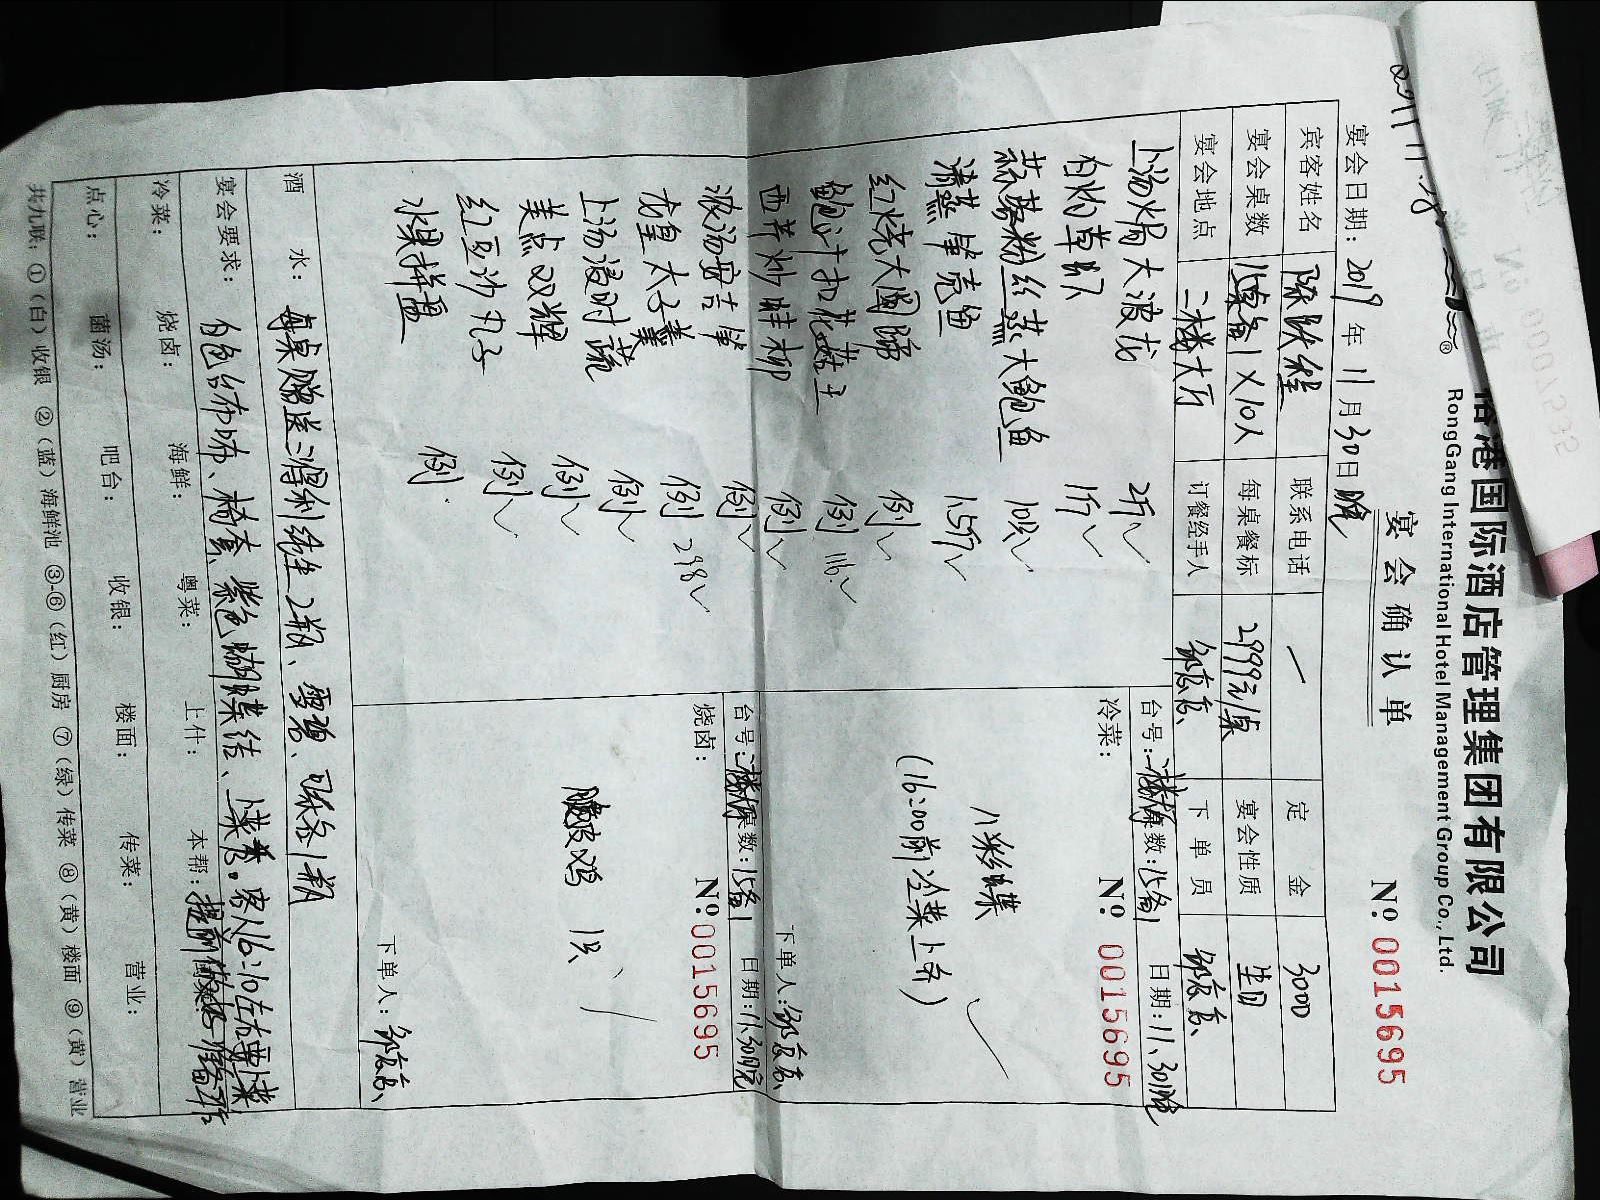 港国际酒店管理集团有限公司
RongGang International Hotel Management Group Co., Ltd.
宴会确认单
№ 0015695
宴会日期: 2019 年 11 月 30 日 晚
宾客姓名 联系电话 — 定金 3000
宴会桌数 15桌备1×10人 每桌餐标 2999元/桌 宴会性质 生日
宴会地点 二楼大厅 订餐经手人 下单员
上汤焗大波龙 2斤
白灼草虾 1斤
蒜蓉粉丝蒸大鲍鱼 10头
清蒸笋壳鱼 1.5斤
红烧大圆蹄 例
鲍汁扣花菇 例 116
西芹炒 柳 例
浓汤安吉笋 例
龙皇太子羹 例 298
上汤浸时蔬 例
美点双辉 例
红豆沙丸子 例
水果拼盘 例
台号: 二楼 桌数: 15备1 日期: 11.30晚
冷菜: № 0015695
八彩蝶
(16:00前冷菜上齐)
下单人:
台号: 二楼 桌数: 15备1 日期: 11.30晚
烧卤: № 0015695
脆皮鸡 1只
下单人:
酒水: 每桌赠送 2瓶、雪碧、可乐各1瓶
宴会要求: 白色台布、椅套、紫色蝴蝶结、
冷菜: 烧卤: 海鲜: 粤菜: 上什: 本帮:
点心: 菌汤: 吧台: 收银: 楼面: 传菜: 营业:
共九联: ①(白)收银 ②(蓝)海鲜池 ③-⑥(红)厨房 ⑦(绿)传菜 ⑧(黄)楼面 ⑨(黄)营业